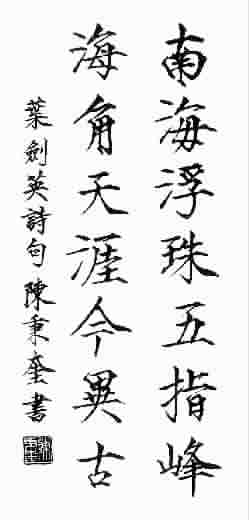 南海浮珠五指峰
海角天涯今異古
葉劍英詩句陳秉奎書